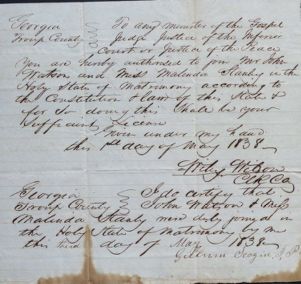 Georgia
Troup County
To any minister of the Gospel
Judge Justice of the Inferior
Court or Justice of the Peace
You are hereby authorized to join Mr John
Watson and Miss Malinda Stanly in the
Holy State of matrimony according to
the Constitution & laws of this State &
for So doing this Shall be your
Sufficient License
Given under my hand
this 1st day of May 1838
Wiley Wilson
Georgia
Troup County
I do certify that
John Watson & Miss
Malinda Stanly were duly joined in
the Holy State of matrimony by me
this third day of May 1838
J. P.